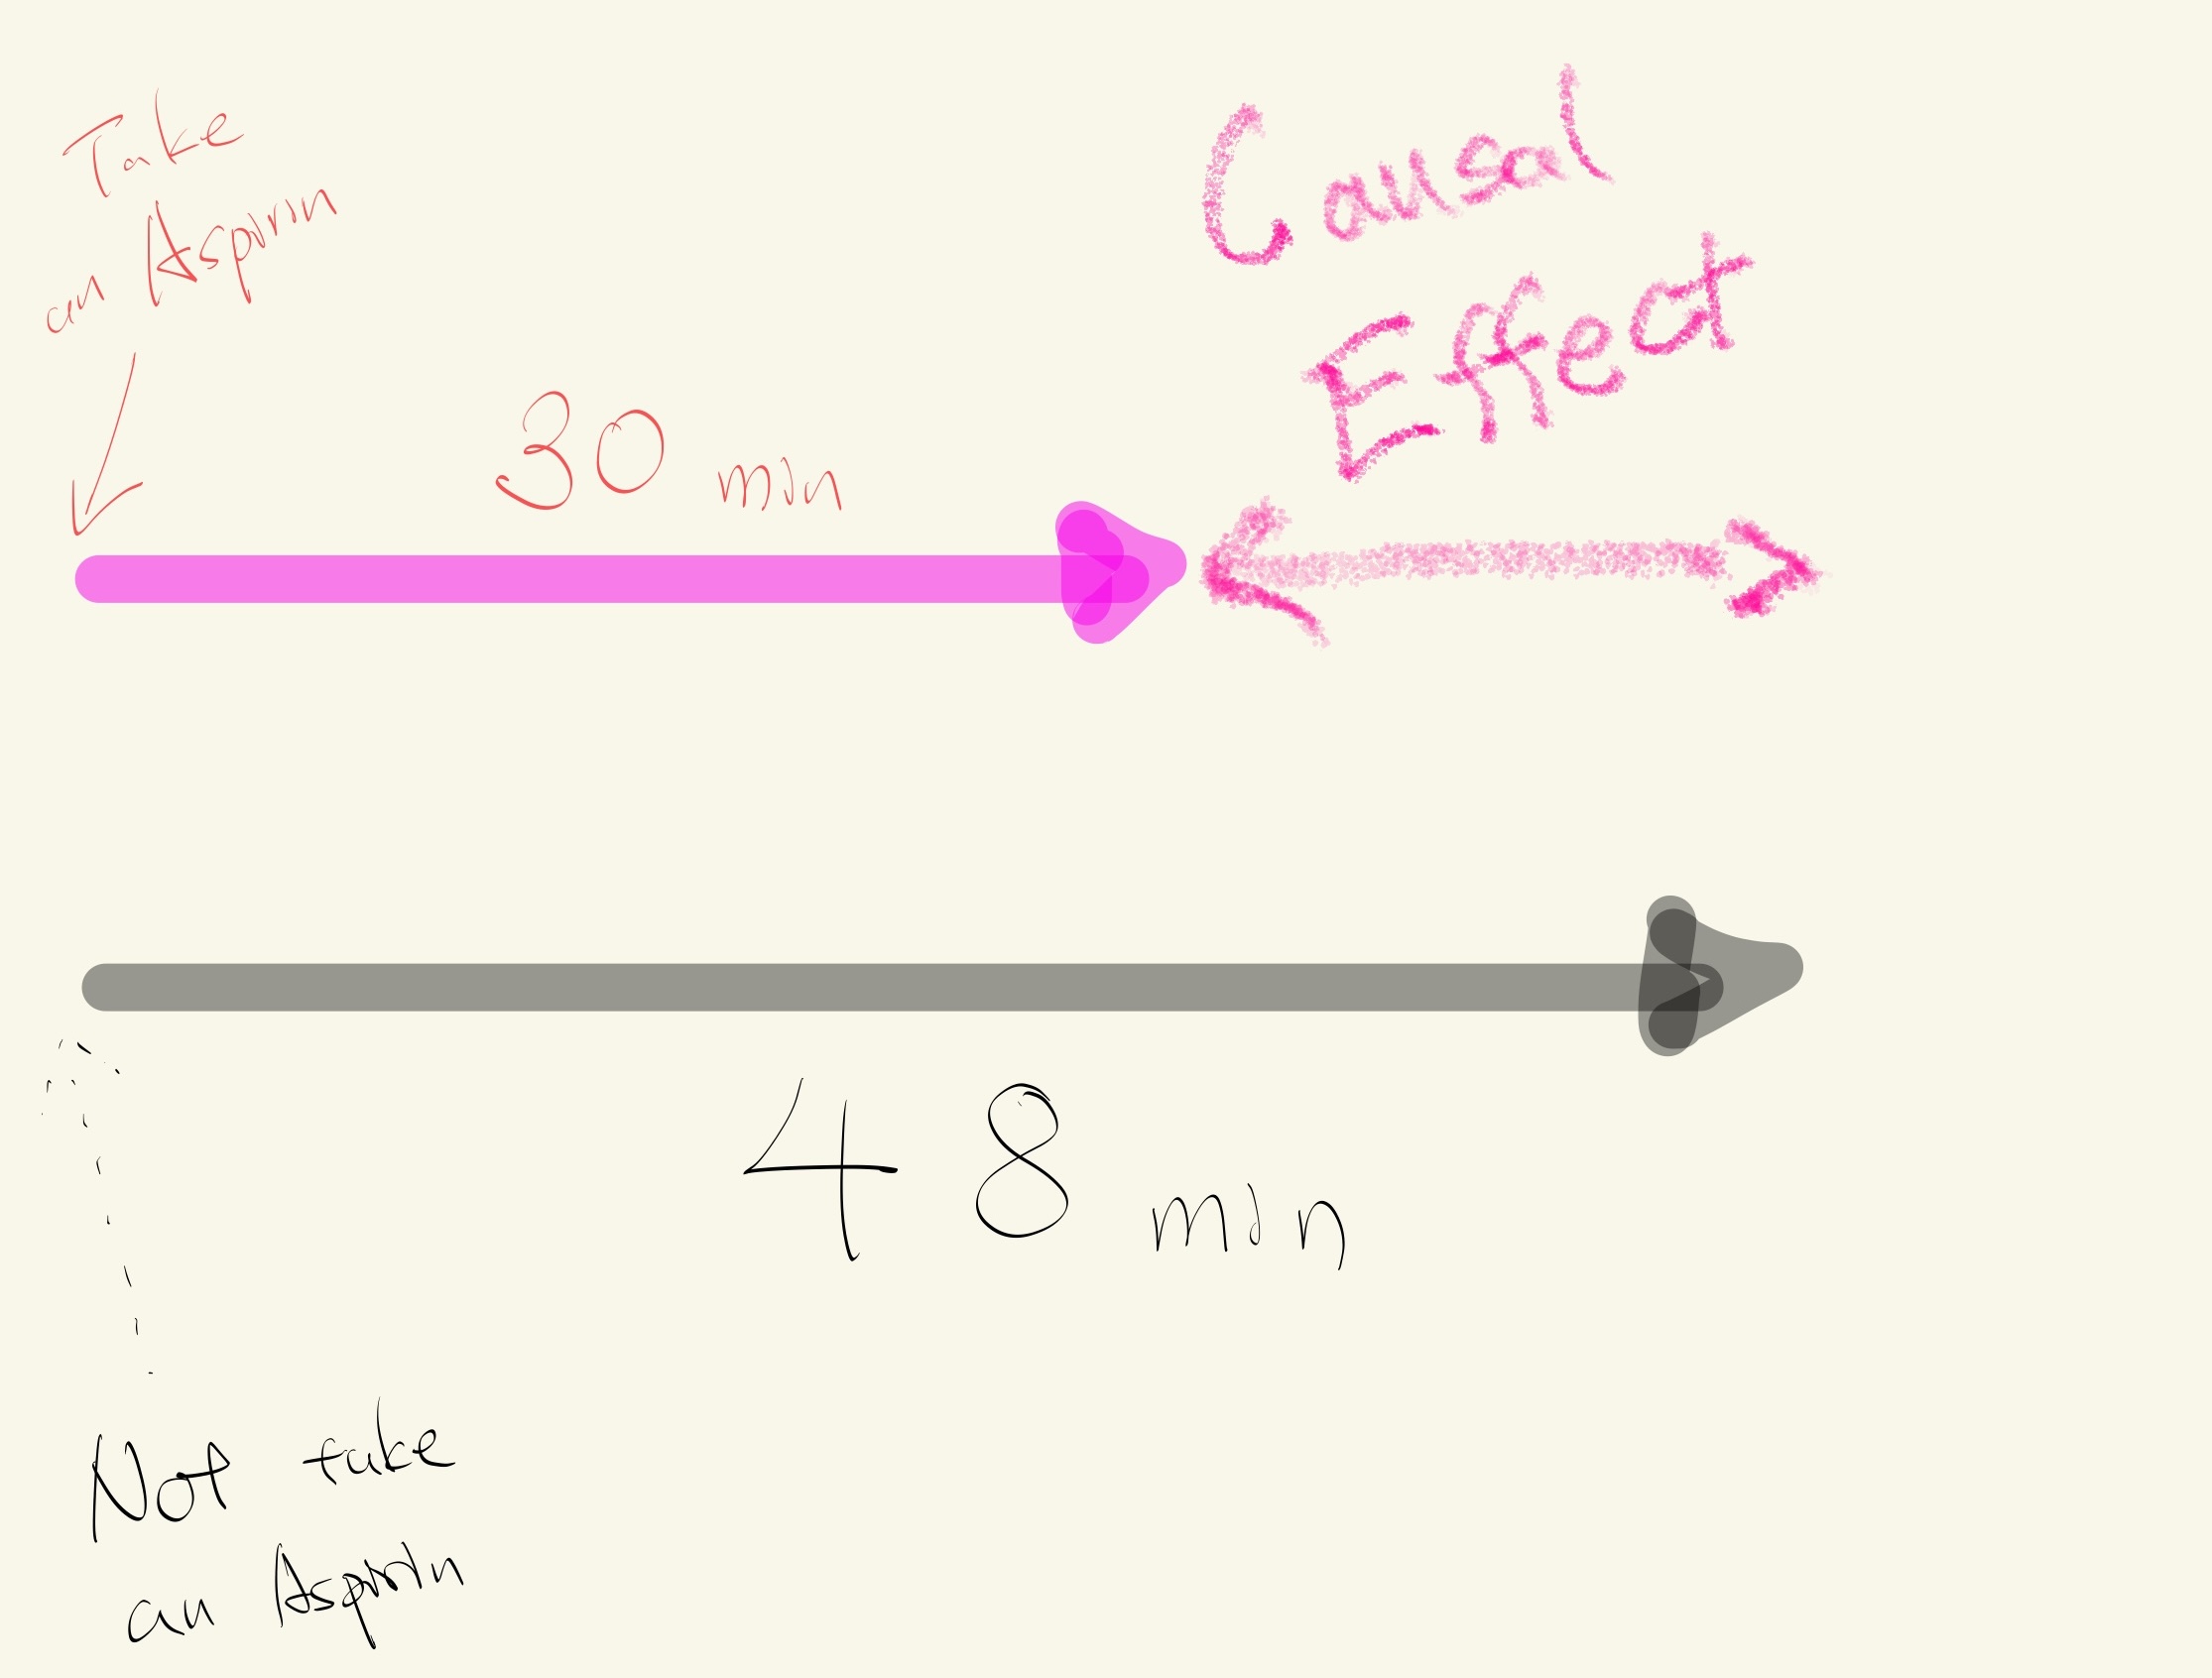 Take
an Aspirin
30 min
Causal
Effect
48 min
Not take
an Aspirin